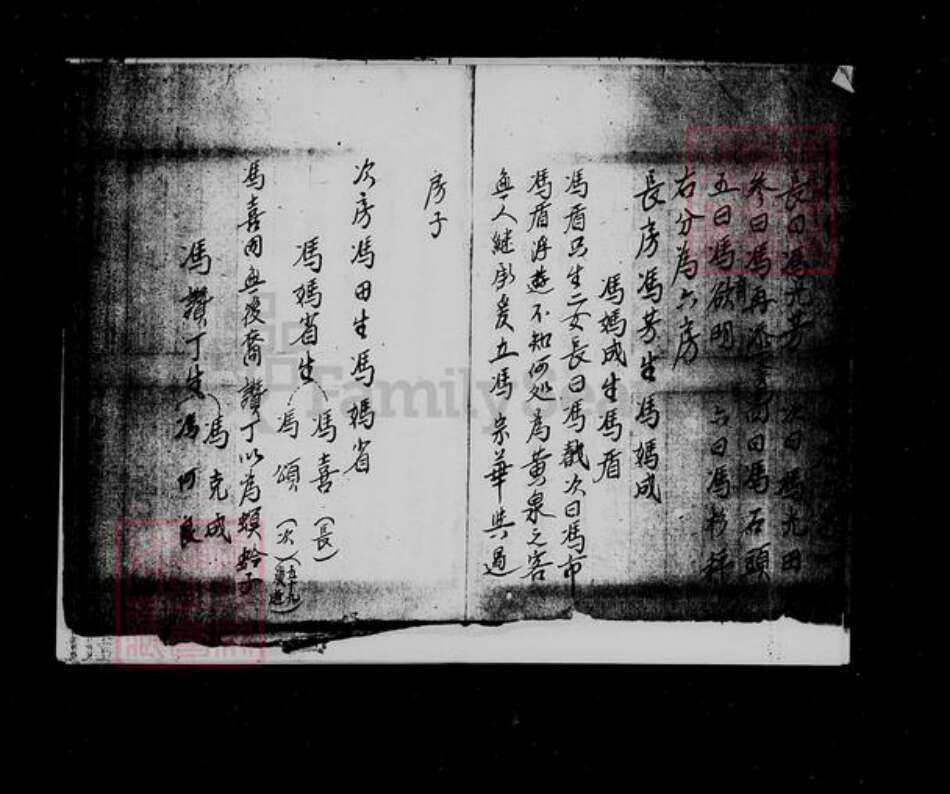 長曰馮光芳 次曰馮光田
參曰馮再添 曰馮石頭
五曰馮啟明 六曰馮
右分為六房
長房馮芳生馮媽成
馮媽成生馮盾
馮盾只生二女長曰馮 次曰馮市
馮盾浮遊不知何処為黃泉之客
無人継承爰立馮宗華與過
房子
次房馮田生馮媽省
馮媽省生 馮喜(長)
馮頌(次)五十九頁
馮喜因無後裔讚丁以為螟蛉子
馮讚丁生 馮克成
馮何良
FamilySearch